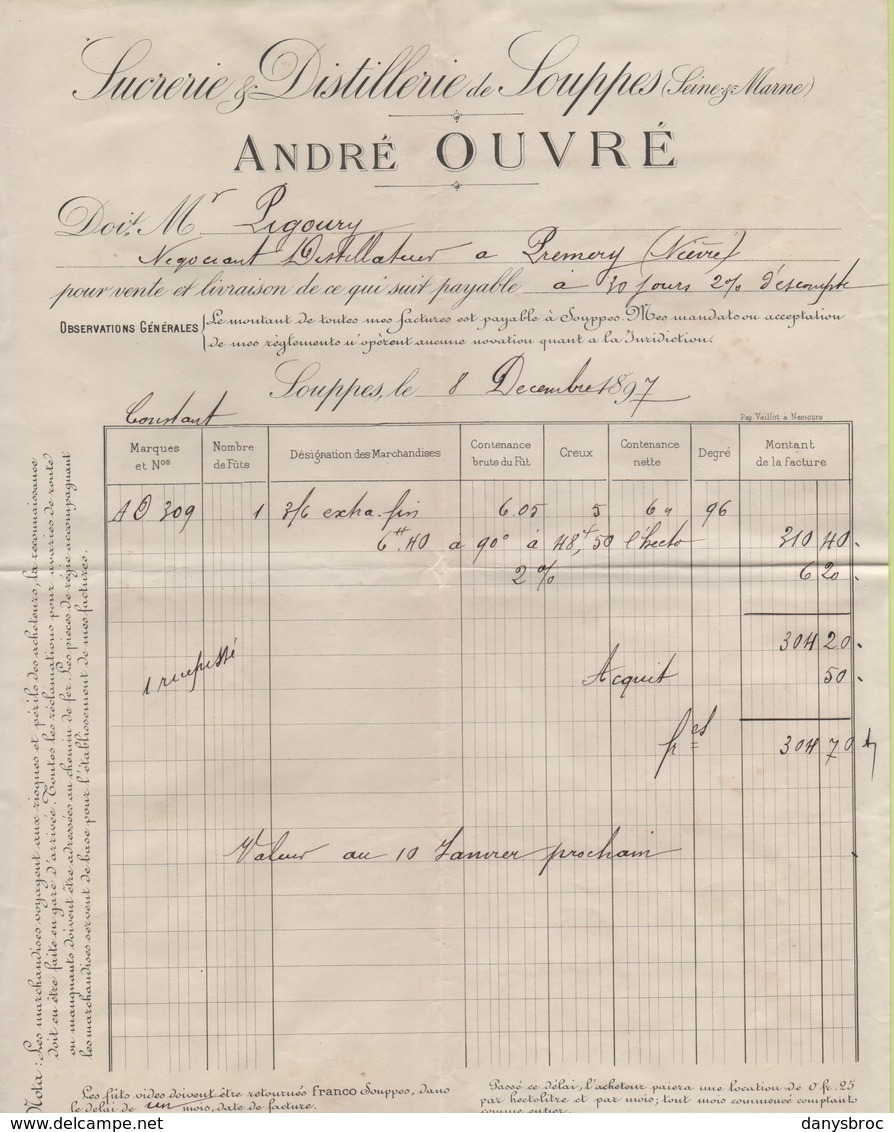 Sucrerie & Distillerie de Souppes (Seine-&-Marne)
ANDRÉ OUVRÉ
Doit Mr Pigoury
Negociant Distillateur a Premery (Nièvre)
pour vente et livraison de ce qui suit payable à 30 jours 2% d'escompte
OBSERVATIONS GÉNÉRALES Le montant de toutes mes factures est payable à Souppes. Mes mandats ou acceptation
de mes règlements n'opèrent aucune novation quant a la Juridiction.
Souppes, le 8 Decembre 1897
Constant
Pap. Vaillot à Nemours
Marques et Nos Nombre de Fûts Désignation des Marchandises Contenance brute du Fût Creux Contenance nette Degré Montant de la facture
AO 309 1 3/6 extra fin 6.05 5 6 " 96
6H.40 a 90° à 48f,50 l'hecto 310 40
2 % 6 20
304 20
1 recepissé Acquit 50
fcs 304 70
Valeur au 10 Janvier prochain
Nota : Les marchandises voyagent aux risques et périls des acheteurs, la reconnaissance
doit en être faite en gare d'arrivée. Toutes les réclamations pour avaries de route
ou manquants doivent être adressées au chemin de fer. Les pièces de régie accompagnant
les marchandises servent de base pour l'établissement de mes factures.
Les fûts vides doivent être retournés franco Souppes, dans
le délai de un mois, date de facture.
Passé ce délai, l'acheteur paiera une location de 0 fr. 25
par hectolitre et par mois; tout mois commencé comptant
comme entier.
delcampe.net
danysbroc